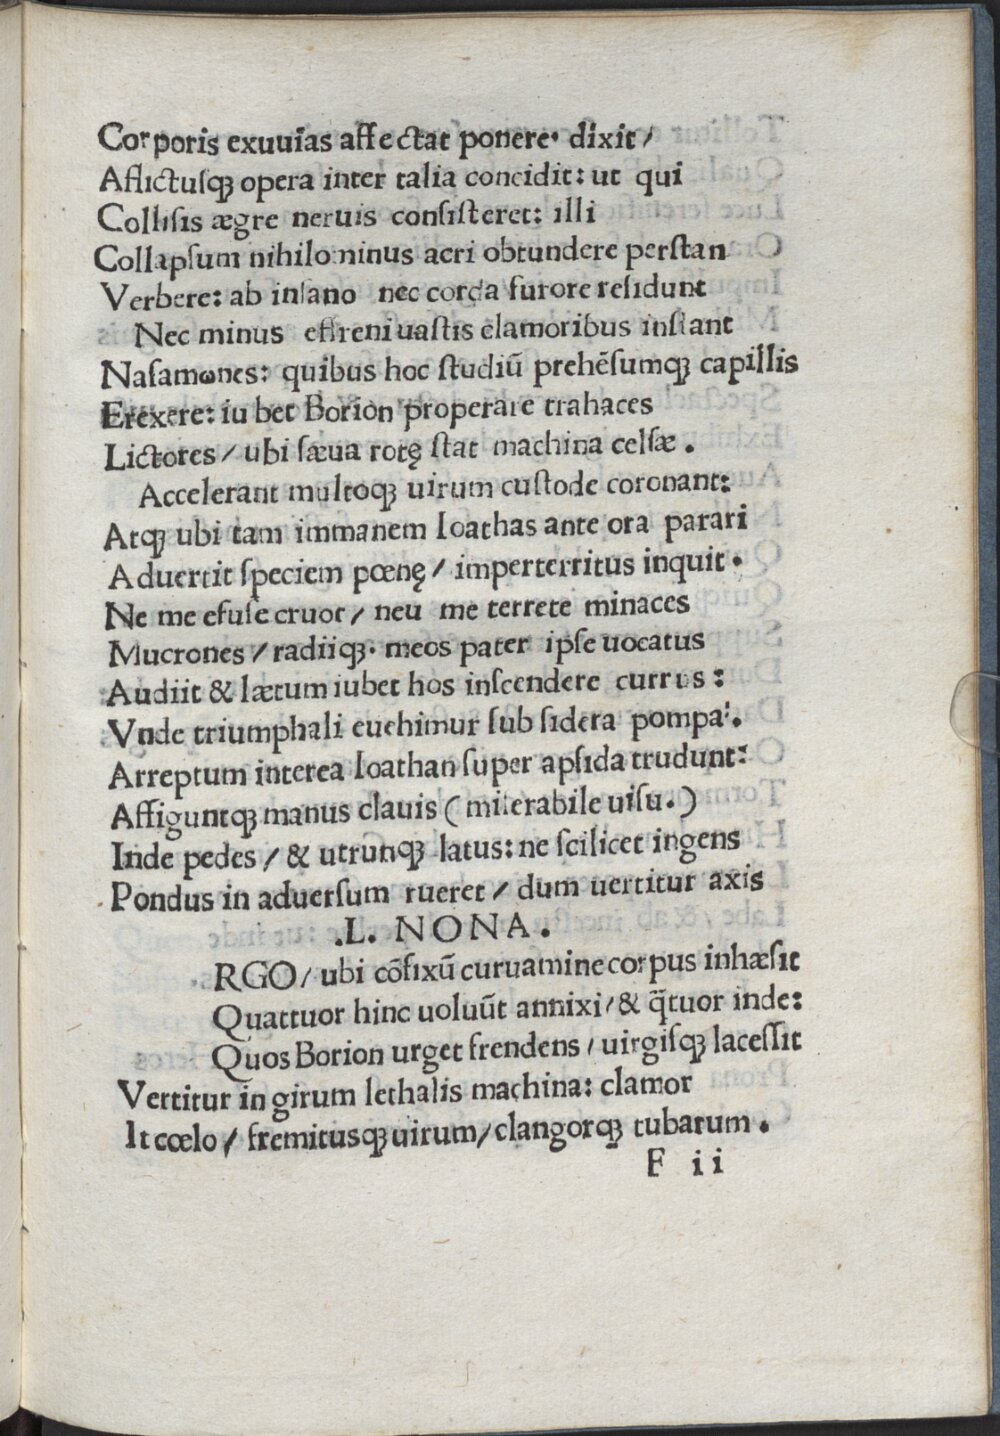 Corporis exuuias affectat ponere. dixit/
Aflictusqꝫ opera inter talia concidit: ut qui
Collisis ægre neruis consisteret: illi
Collapsum nihilominus acri obtundere perstan
Verbere: ab insano nec corda furore residunt
Nec minus effreni uastis clamoribus instant
Nasamωnes: quibus hoc studiũ prehẽsumqꝫ capillis
Erexere: iu bet Borion properare trahaces
Lictores/ ubi sæua rotę stat machina celsæ.
Accelerant multoqꝫ uirum custode coronant:
Atqꝫ ubi tam immanem Ioathas ante ora parari
Aduertit speciem pœnę/ imperterritus inquit.
Ne me efuse cruor/ neu me terrete minaces
Mucrones/ radiiqꝫ. meos pater ipse uocatus
Audiit & lætum iubet hos inscendere currus:
Vnde triumphali euehimur sub sidera pompa.
Arreptum interea Ioathan super apsida trudunt:
Affiguntqꝫ manus clauis (miserabile uisu.)
Inde pedes/ & utrunqꝫ latus: ne scilicet ingens
Pondus in aduersum rueret/ dum uertitur axis
.L. NONA.
RGO/ ubi cõfixũ curuamine corpus inhæsit
Quattuor hinc uoluũt annixi/ & q̃tuor inde:
Quos Borion urget frendens/ uirgisqꝫ lacessit
Vertitur in girum lethalis machina: clamor
It cœlo/ fremitusqꝫ uirum/ clangorqꝫ tubarum.
F ii